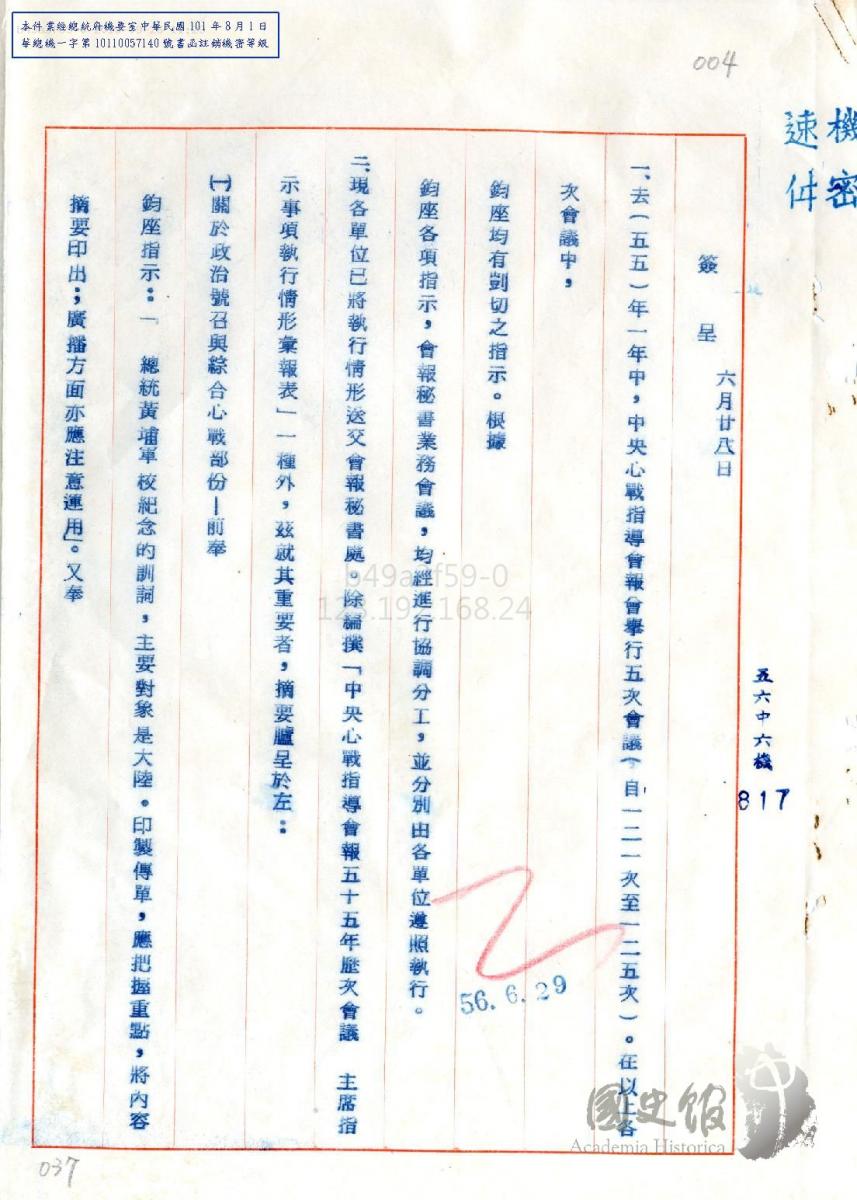 本件業經總統府機要室中華民國101年8月1日
華總機一字第10110057140號書函註銷機密等級
004
機密
速件
五六中六機
817
簽呈 六月廿八日
一、去(五五)年一年中，中央心戰指導會報曾舉行五次會議(自一二一次至一二五次)。在以上各
次會議中，
鈞座均有剴切之指示。根據
鈞座各項指示，會報秘書業務會議，均經進行協調分工，並分別由各單位遵照執行。
二、現各單位已將執行情形送交會報秘書處。除編撰「中央心戰指導會報五十五年歷次會議 主席指
示事項執行情形彙報表」一種外，茲就其重要者，摘要臚呈於左：
㈠關於政治號召與綜合心戰部份—前奉
鈞座指示：「 總統黃埔軍校紀念的訓詞，主要對象是大陸。印製傳單，應把握重點，將內容
摘要印出；廣播方面亦應注意運用」。又奉
56.6.29
b49a2f59-0
123.192.168.24
國史館
Academia Historica
037